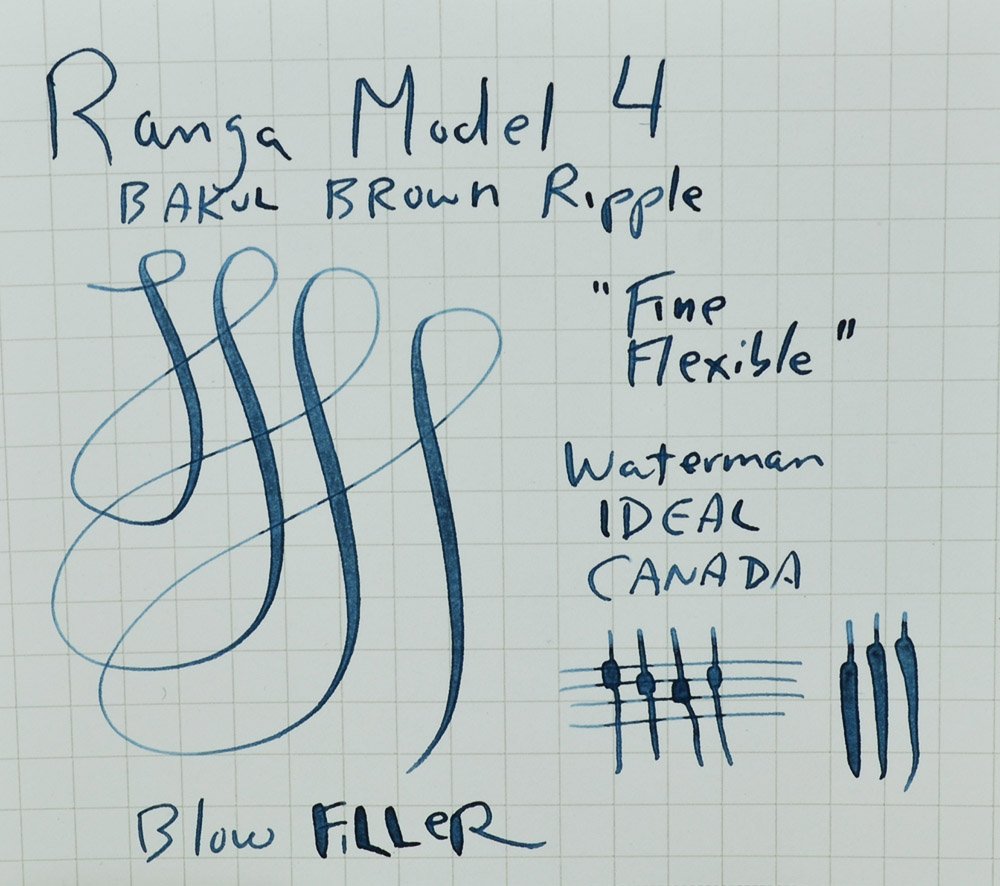 Ranga Model 4
BAKUL BROWN Ripple
"Fine
Flexible"
Waterman
IDEAL
CANADA
Blow FiLLeR